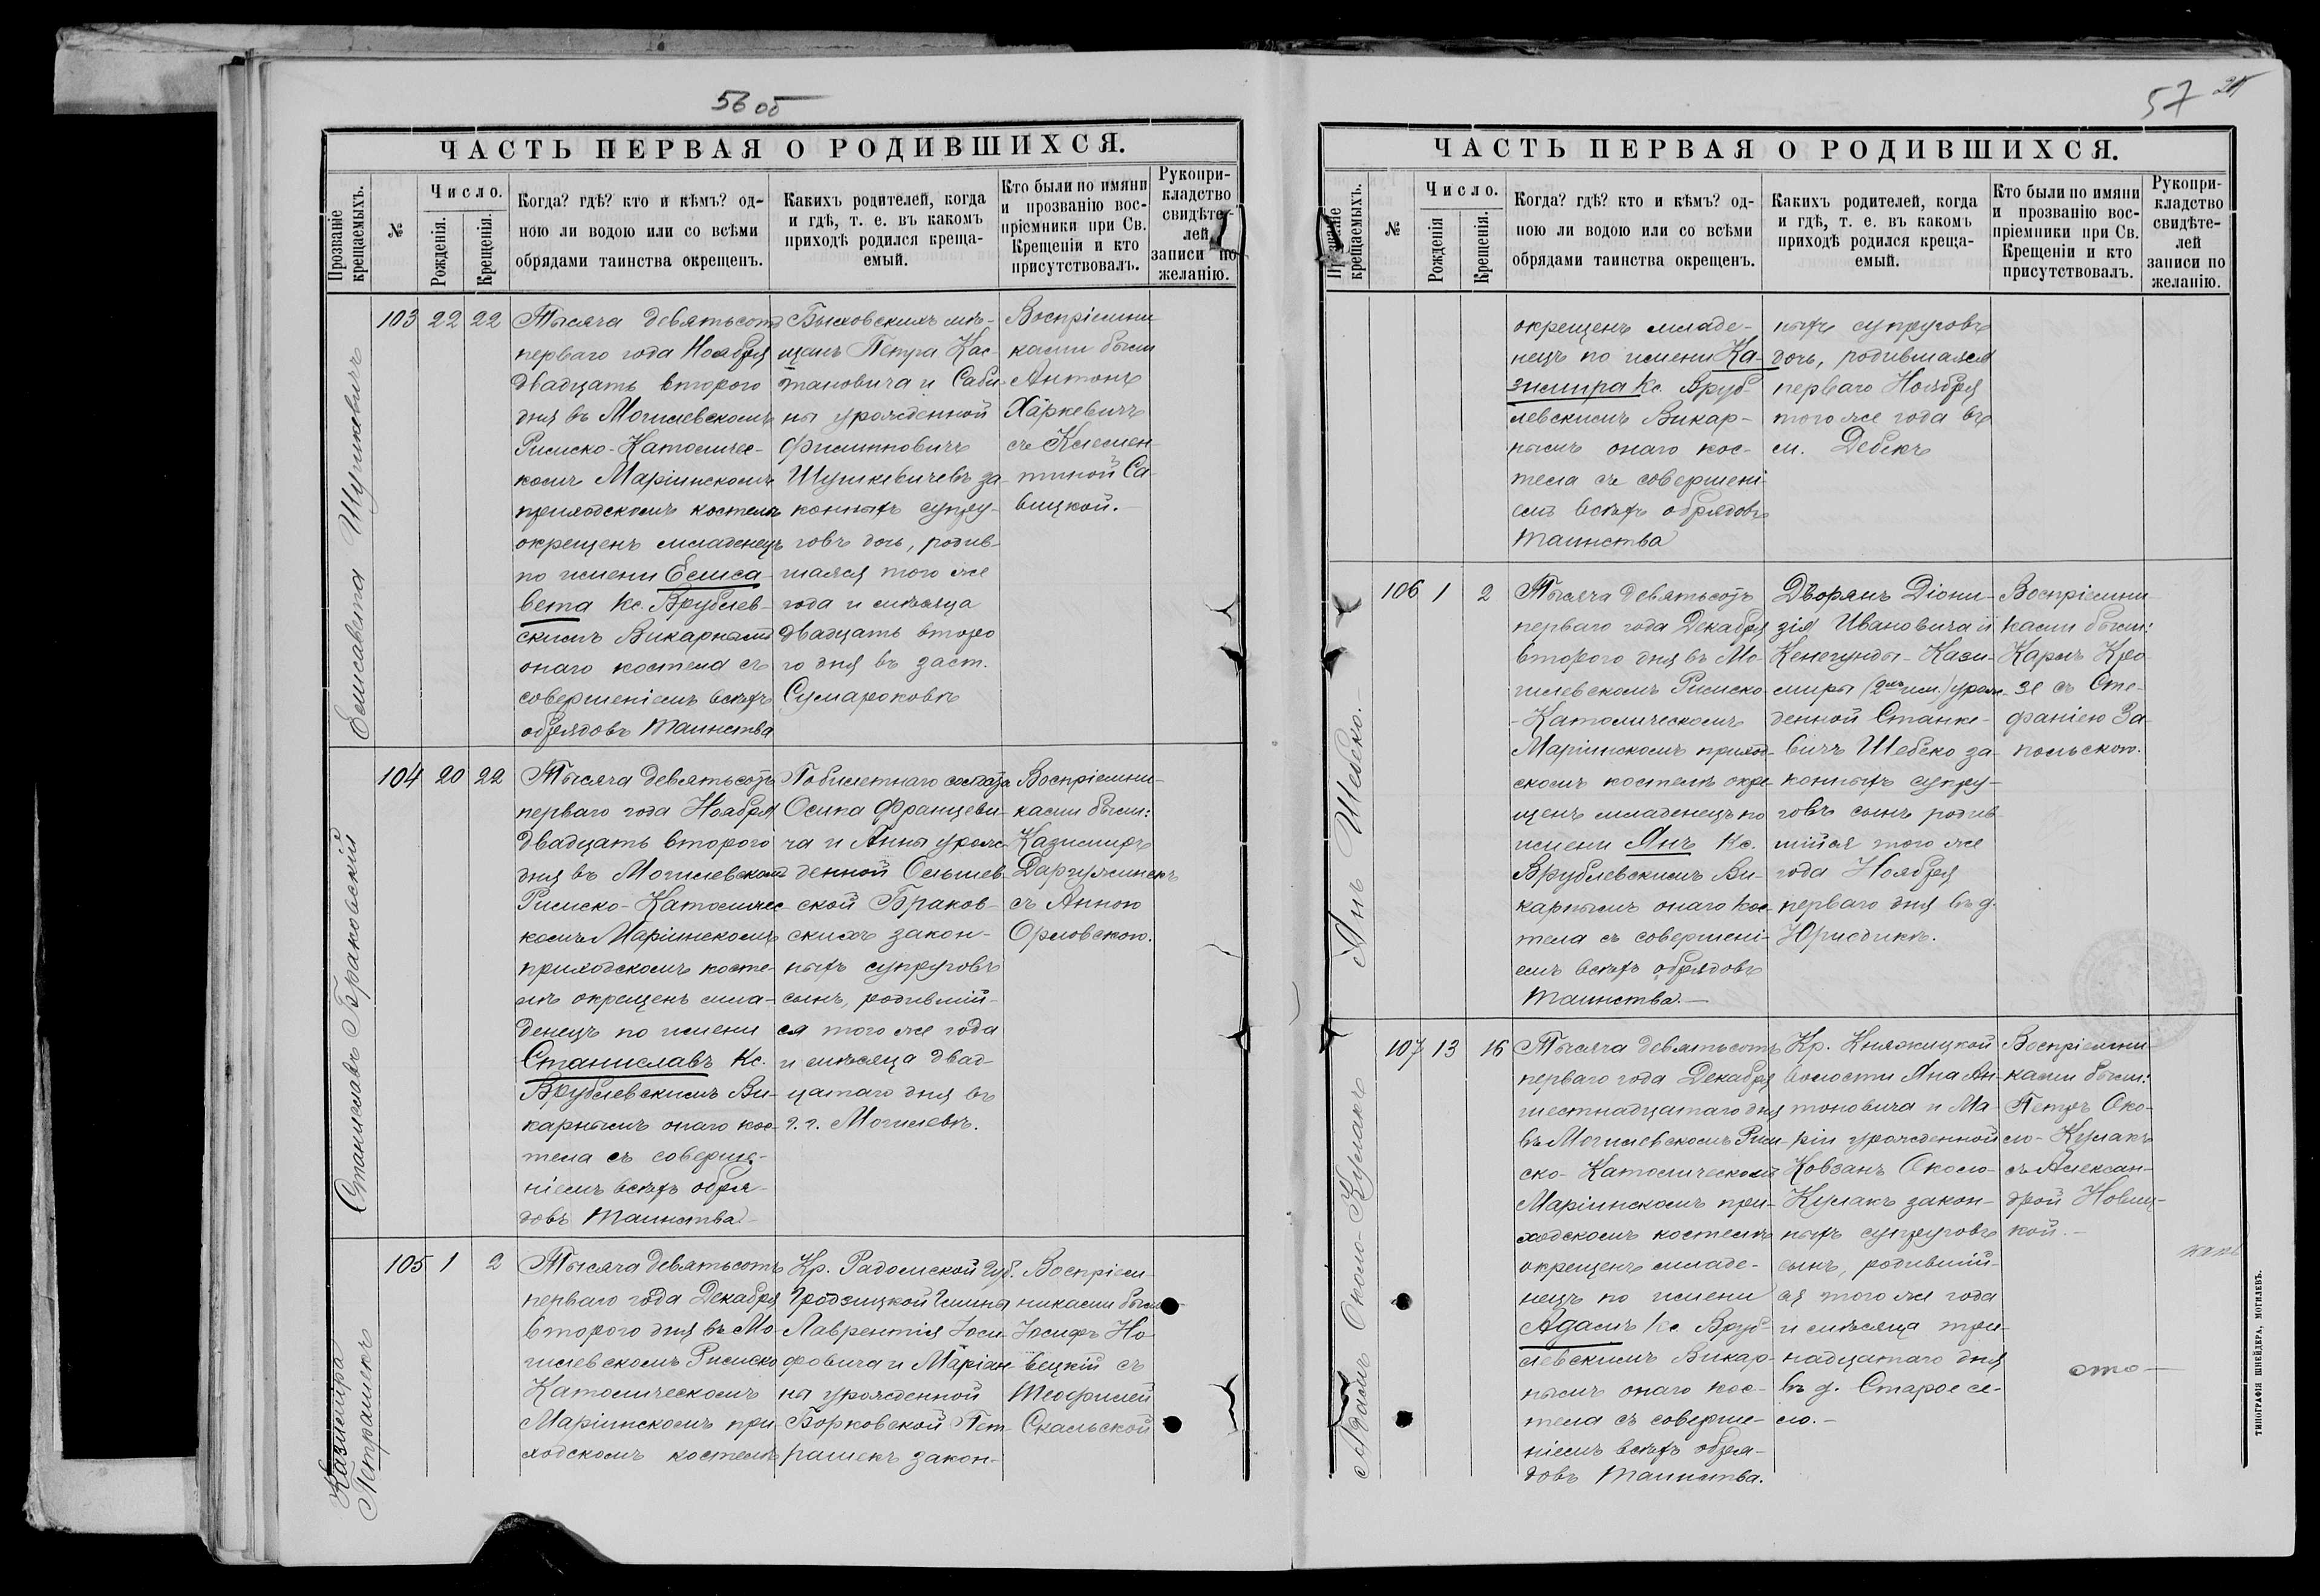 56 об
ЧАСТЬ ПЕРВАЯ О РОДИВШИХСЯ.
Прозваніе крещаемыхъ.
№
Число.
Рожденія.
Крещенія.
Когда? гдѣ? кто и кѣмъ? од-
ною ли водою или со всѣми
обрядами таинства окрещенъ.
Какихъ родителей, когда
и гдѣ, т. е. въ какомъ
приходѣ родился креща-
емый.
Кто были по имяни
и прозванію вос-
пріемники при Св.
Крещеніи и кто
присутствовалъ.
Рукопри-
кладство
свидѣте-
лей
записи по
желанію.
Елисавета Шушкевичъ
103 22 22
Тысяча девятьсотъ
перваго года Ноября
двадцать второго
дня въ Могилевскомъ
Римско-Католичес-
комъ Маріинскомъ
приходскомъ костелѣ
окрещенъ младенецъ
по имени Елиса-
вета Кс. Врублев-
скимъ Викарнымъ
онаго костела съ
совершеніемъ всѣхъ
обрядовъ Таинства
Быховскихъ мѣ-
щанъ Петра Кас-
тановича и Саби-
ны урожденной
Филипповичъ
Шушкевичевъ за-
конныхъ супру-
говъ дочь, родив-
шаяся того же
года и мѣсяца
двадцать второ
го дня въ заст.
Сумароковѣ
Воспріемни
ками были
Антонъ
Харкевичъ
съ Клемен
тиной Са-
вицкой.
Станиславъ Браковскій
104 20 22
Тысяча девятьсотъ
перваго года Ноября
двадцать второго
дня въ Могилевскомъ
Римско-Католичес
комъ Маріинскомъ
приходскомъ косте-
лѣ окрещенъ мла-
денецъ по имени
Станиславъ Кс.
Врублевскимъ Ви-
карнымъ онаго кос-
тела съ соверше-
ніемъ всѣхъ обря-
довъ Таинства
Побилетнаго солдата
Осипа Францеви-
ча и Анны урож-
денной Ольшев-
ской Браков-
скихъ закон-
ныхъ супруговъ
сынъ, родившій-
ся того же года
и мѣсяца двад-
цатаго дня въ
г. г. Могилевѣ.
Воспріемни-
ками были:
Казимиръ
съ Анною
Орловскою.
Казиміра
Петрашекъ
105 1 2
Тысяча девятьсотъ
перваго года Декабря
второго дня въ Мо-
гилевскомъ Римско
Католическомъ
Маріинскомъ при-
ходскомъ костелѣ
Кр. Радомской Губ.
Гродзицкой Гмины
Лаврентія Іоси-
фовича и Маріан-
ны урожденной
Борковской Пет-
рашекъ закон-
Воспріем-
никами были
Іосифъ Но-
вецкій съ
Теофилей
Скальской
57
ЧАСТЬ ПЕРВАЯ О РОДИВШИХСЯ.
Прозваніе крещаемыхъ.
№
Число.
Рожденія
Крещенія.
Когда? гдѣ? кто и кѣмъ? од-
ною ли водою или со всѣми
обрядами таинства окрещенъ.
Какихъ родителей, когда
и гдѣ, т. е. въ какомъ
приходѣ родился креща-
емый.
Кто были по имяни
и прозванію вос-
пріемники при Св.
Крещеніи и кто
присутствовалъ.
Рукопри-
кладство
свидѣте-
лей
записи по
желанію.
окрещенъ младе-
нецъ по имени Ка-
зимира Кс. Вруб
левскимъ Викар-
нымъ онаго кос-
тела съ совершені-
емъ всѣхъ обрядовъ
Таинства
ныхъ супруговъ
дочь, родившаяся
перваго Ноября
того же года въ
м. Дебекъ
Янъ Шебеко.
106 1 2
Тысяча девятьсотъ
перваго года Декабря
второго дня въ Мо-
гилевскомъ Римско
-Католическомъ
Маріинскомъ приход-
скомъ костелѣ окре
щенъ младенецъ по
имени Янъ Кс.
Врублевскимъ Ви-
карнымъ онаго Кос-
тела съ совершені-
емъ всѣхъ обрядовъ
Таинства.
Дворянъ Діони-
зія Ивановича и
Кенегунды-Кази-
миры (2хъ им.) урож-
денной Станке-
вичъ Шебеко за-
конныхъ супру-
говъ сынъ родив
шійся того же
года Ноября
перваго дня въ д.
Юрисдикѣ.
Воспріемни
ками были:
Карлъ Кро
зе съ Сте-
фаніею За-
польскою.
Адамъ Около-Кулакъ
107 13 16
Тысяча девятьсотъ
перваго года Декабря
шестнадцатаго дня
въ Могилевскомъ Рим
ско-Католическомъ
Маріинскомъ при-
ходскомъ костелѣ
окрещенъ младе-
нецъ по имени
Адамъ Кс. Вруб-
левскимъ Викар-
нымъ онаго кос-
тела съ соверше-
ніемъ всѣхъ обря-
довъ Таинства.
Кр. Княжицкой
волости Яна Ан-
тоновича и Ма-
ріи урожденной
Ковзанъ Около-
Кулакъ закон-
ныхъ супруговъ
сынъ, родившій-
ся того же года
и мѣсяца три-
надцатаго дня
въ д. Старое се-
ло.
Воспріемни-
ками были:
Петръ Око-
ло-Кулакъ
съ Алексан-
дрой Новиц-
кой.
ТИПОГРАФІЯ ШНЕЙДЕРА, МОГИЛЕВЪ.